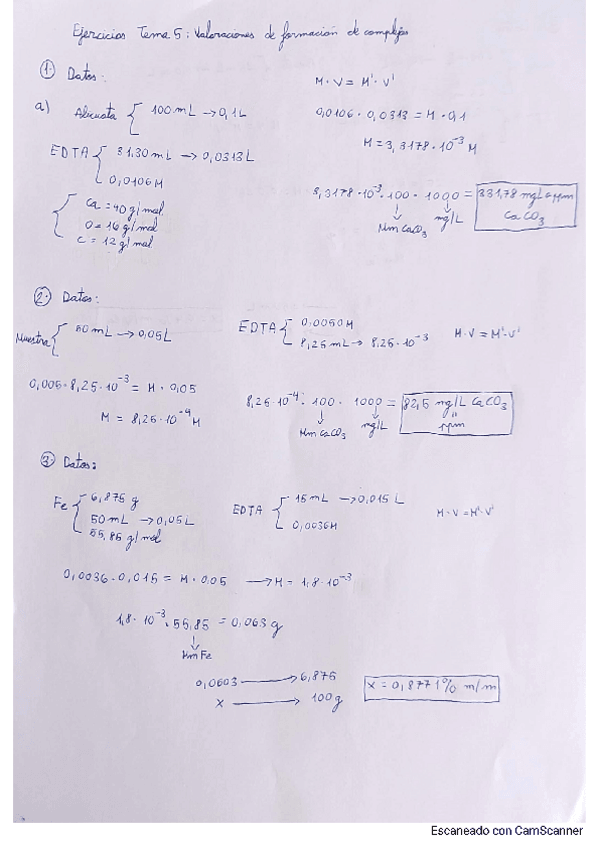 Ejercicios Tema 5: Valoraciones de formación de complejos
① Datos:
a) Alicuota { 100 mL → 0,1 L
EDTA { 31,30 mL → 0,0313 L
0,0106 M
{ Ca = 40 g/mol
O = 16 g/mol
C = 12 g/mol
M · V = M' · V'
0,0106 · 0,0313 = M · 0,1
M = 3,3178 · 10⁻³ M
3,3178 · 10⁻³ · 100 · 1000 = 331,78 mg/L o ppm
CaCO₃
↓ Mm CaCO₃
↓ mg/L
② Datos:
Muestra { 50 mL → 0,05 L
EDTA { 0,0050 M
8,25 mL → 8,25 · 10⁻³
M · V = M' · V'
0,005 · 8,25 · 10⁻³ = M · 0,05
M = 8,25 · 10⁻⁴ M
8,25 · 10⁻⁴ · 100 · 1000 = 82,5 mg/L CaCO₃
" ppm
↓ Mm CaCO₃
↓ mg/L
③ Datos:
Fe { 6,875 g
50 mL → 0,05 L
55,85 g/mol
EDTA { 15 mL → 0,015 L
0,0036 M
M · V = M' · V'
0,0036 · 0,015 = M · 0,05 → M = 1,8 · 10⁻³
1,8 · 10⁻³ · 55,85 = 0,063 g
↓ Mm Fe
0,0603 → 6,875
x → 100 g
x = 0,8771 % m/m
Escaneado con CamScanner